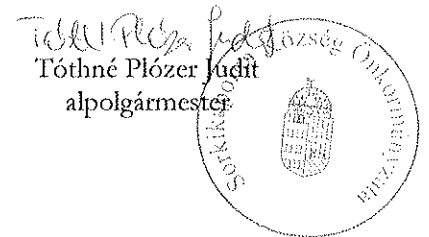 Tóthné Plózer Judit
Tóthné Plózer Judit
alpolgármester
Sorkikápolna Község Önkormányzata